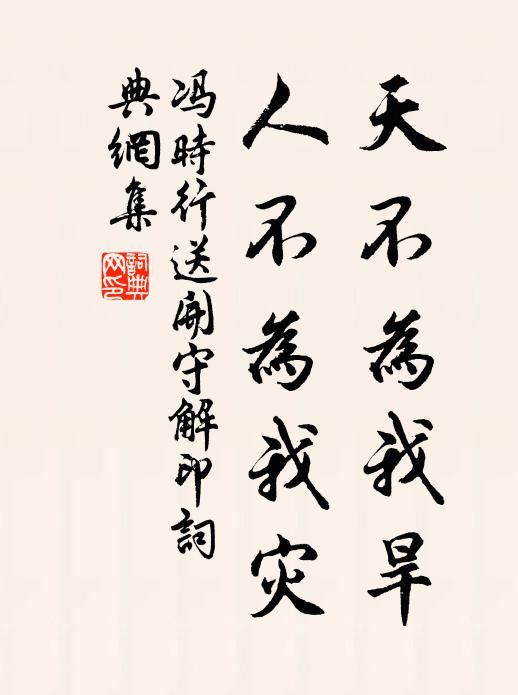 天不為我旱
人不為我灾
冯時行送開守解印詞
典網集
詞典
网印